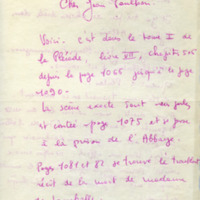 Cher Jean
Voici. C'est dans le tome I de
la Pléiade, livre VII, chapitre 5 et 6
depuis la page 1066 jusqu'à la page
1090.
La scène exacte dont
est contée page 1075 et se passe
à la prison de l'Abbaye.
Pages 1081 et 82 se trouve le
récit de la mort de madame
de Lamballe